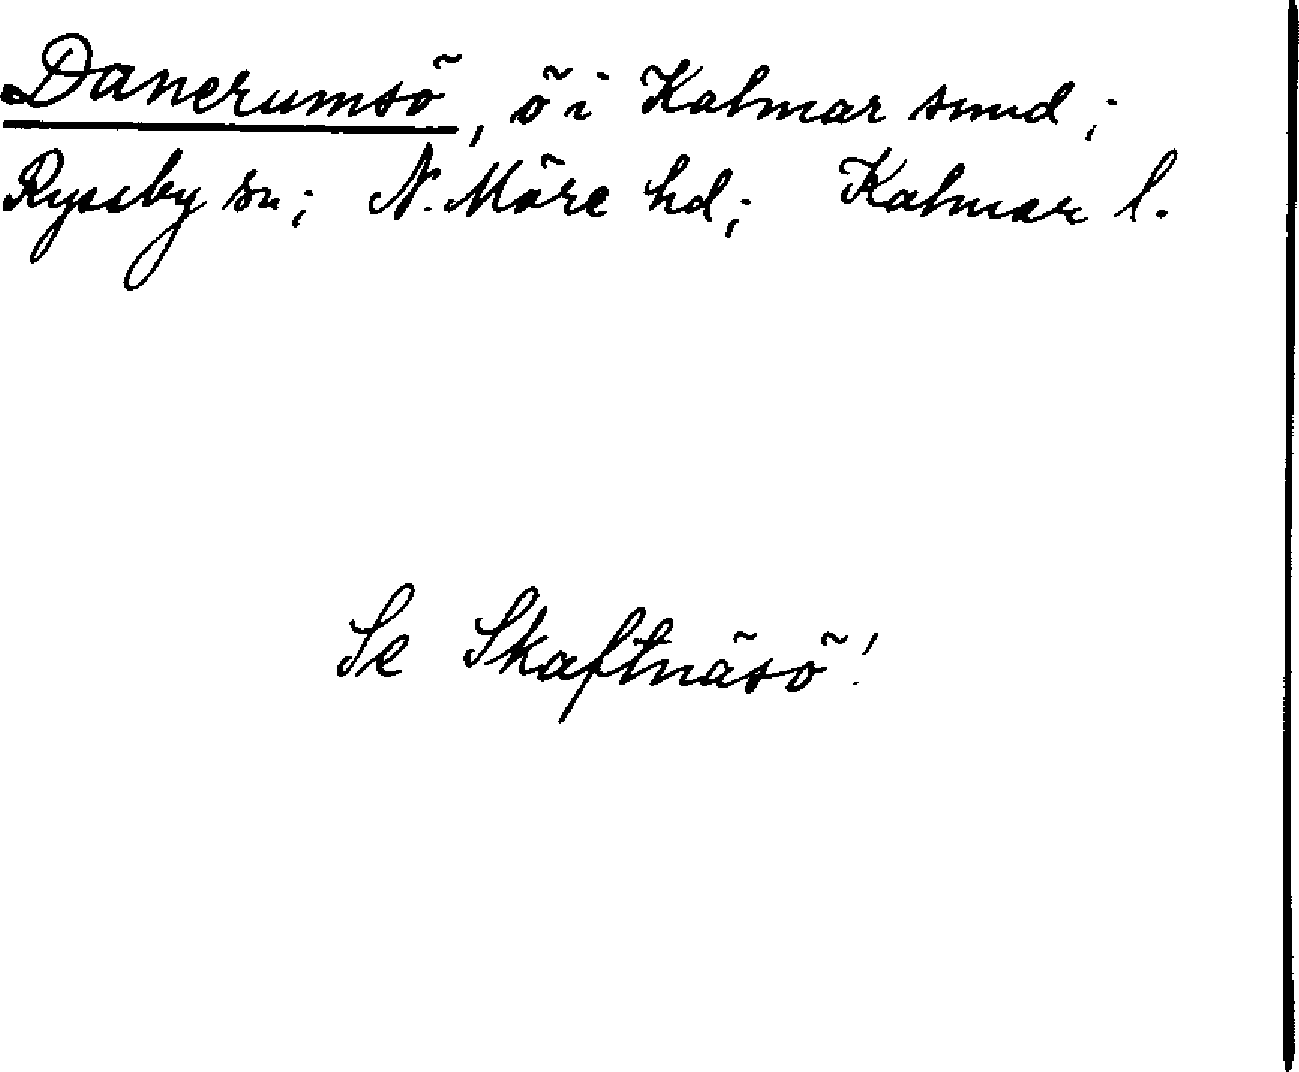 Danerumsö, ö i Kalmar sund;
Ryssby sn; N. Möre hd; Kalmar l.
Se Skaftnäsö!